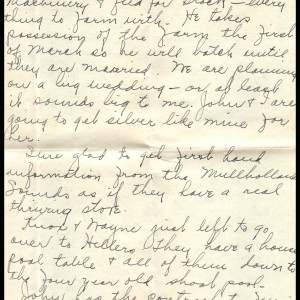 machinery & feed for stock - every
thing to farm with. He takes
possession of the farm the first
of March so he will batch until
they are married. We are planning
on a big wedding - or at least
it sounds big to me. John & I are
going to get silver like mine for
her.
Sure glad to get first hand
information from the Mullhollands
Sounds as if they have a real
thriving store.
& Wayne just left to go
over to They have a house
pool table & all of them down to
the four year old shoot pool.
John has the